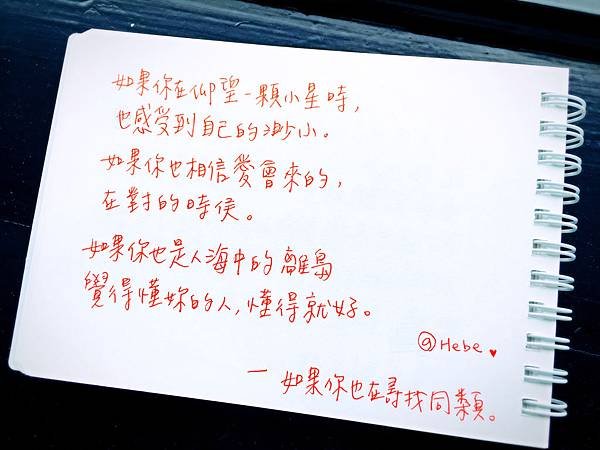 如果你在仰望一顆小星時，
也感受到自己的渺小。
如果你也相信愛會來的，
在對的時侯。
如果你也是人海中的離島
覺得懂妳的人，懂得就好。
@Hebe ♥
— 如果你也在尋找同類。